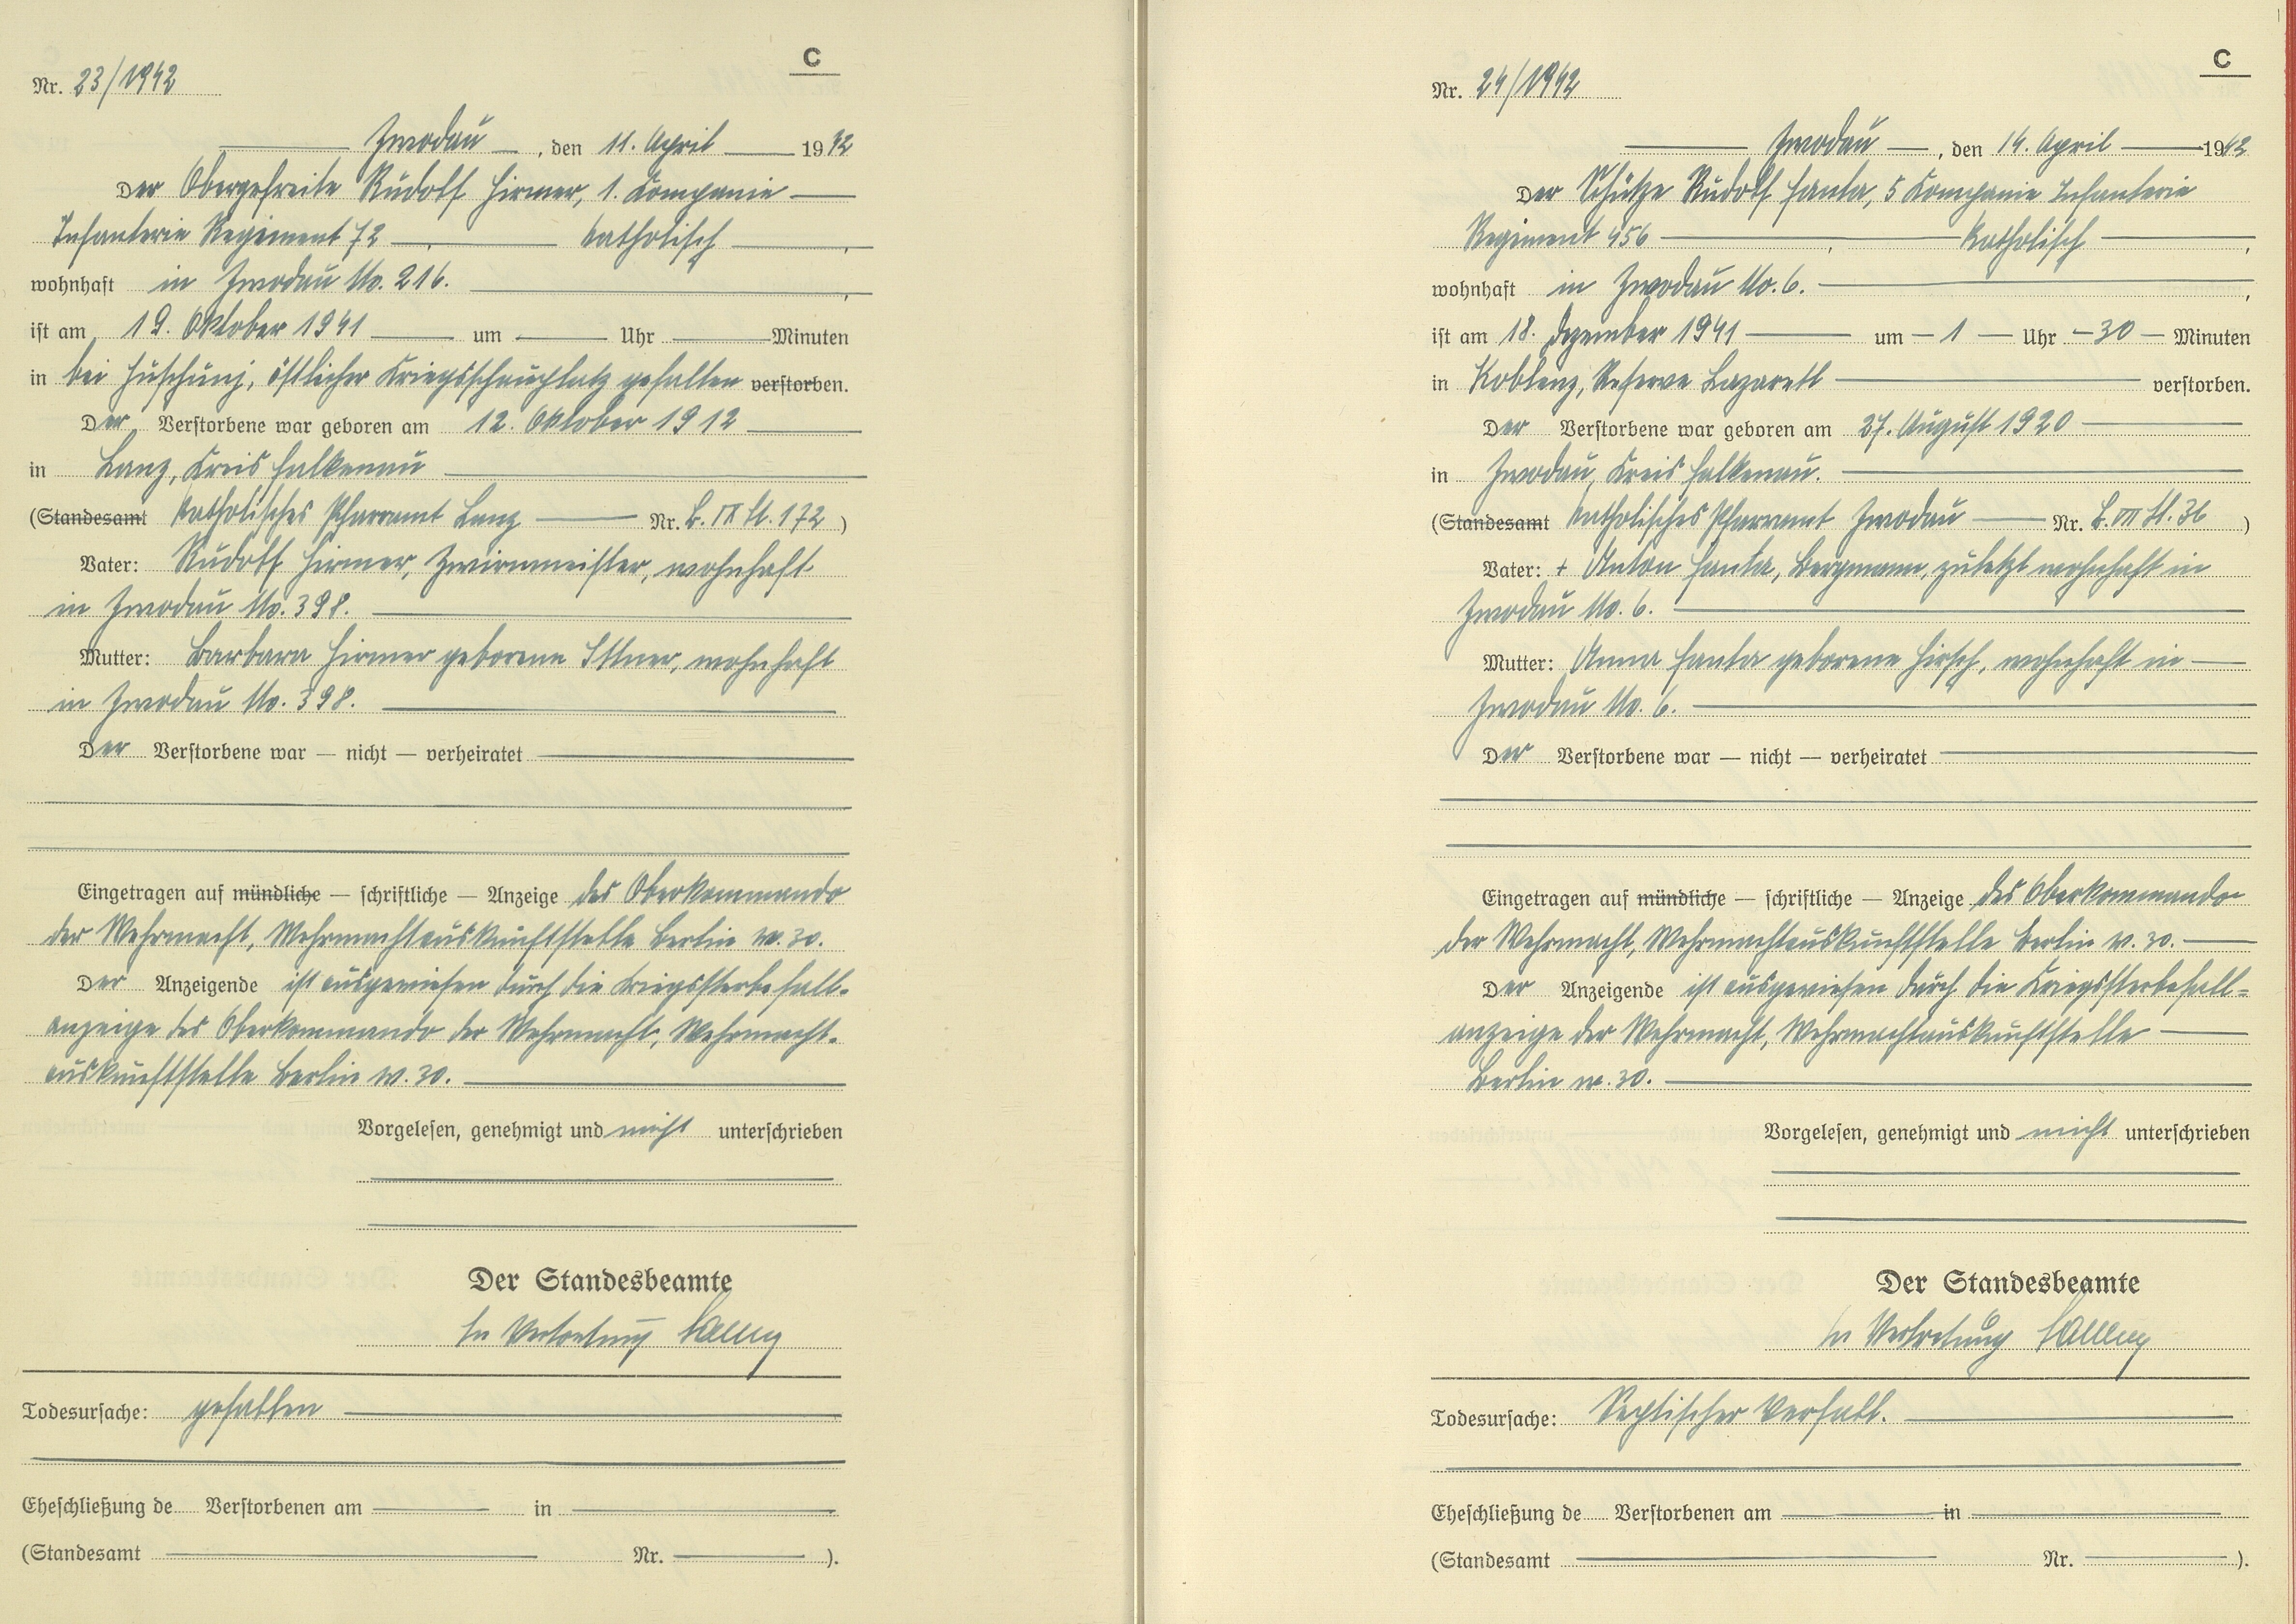 C
Nr. 23/1942
Zwodau, den 11. April 1942
Der Obergefreite Rudolf Hirmer, 1. Kompanie
Infanterie Regiment 72, katholisch,
wohnhaft in Zwodau No. 216.,
ist am 19. Oktober 1941 um Uhr Minuten
in bei östlicher Kriegsschauplatz gefallen verstorben.
Der Verstorbene war geboren am 12. Oktober 1912
in Lanz, Kreis Falkenau
(Standesamt Katholisches Pfarramt Lanz Nr. B. IX Bl. 172)
Vater: Rudolf Hirmer, Zwirnmeister, wohnhaft
in Zwodau No. 398.
Mutter: Barbara Hirmer geborene Ittner, wohnhaft
in Zwodau No. 398.
Der Verstorbene war — nicht — verheiratet
Eingetragen auf mündliche — schriftliche — Anzeige des Oberkommando
der Wehrmacht, Wehrmachtauskunftstelle Berlin W. 30.
Der Anzeigende ist ausgewiesen durch die Kriegssterbefall-
anzeige des Oberkommando der Wehrmacht, Wehrmacht-
auskunftstelle Berlin W. 30.
Vorgelesen, genehmigt und nicht unterschrieben
Der Standesbeamte
In Vertretung
Todesursache: gefallen
Eheschließung de Verstorbenen am in
(Standesamt Nr. ).
C
Nr. 24/1942
Zwodau, den 14. April 1942
Der Schütze Rudolf Fanta, 5 Kompanie Infanterie
Regiment 456, katholisch,
wohnhaft in Zwodau No. 6.,
ist am 18. Dezember 1941 um 1 Uhr 30 Minuten
in Koblenz, Reserve Lazarett verstorben.
Der Verstorbene war geboren am 27. August 1920
in Zwodau, Kreis Falkenau.
(Standesamt Katholisches Pfarramt Zwodau Nr. B. III Bl. 36)
Vater: + Anton Fanta, Bergmann, zuletzt wohnhaft in
Zwodau No. 6.
Mutter: Anna Fanta geborene Hirsch, wohnhaft in
Zwodau No. 6.
Der Verstorbene war — nicht — verheiratet
Eingetragen auf mündliche — schriftliche — Anzeige des Oberkommando
der Wehrmacht, Wehrmachtauskunftstelle Berlin W. 30.
Der Anzeigende ist ausgewiesen durch die Kriegssterbefall=
anzeige der Wehrmacht, Wehrmachtauskunftstelle
Berlin W. 30.
Vorgelesen, genehmigt und nicht unterschrieben
Der Standesbeamte
In Vertretung
Todesursache: Septischer Verfall.
Eheschließung de Verstorbenen am in
(Standesamt Nr. ).